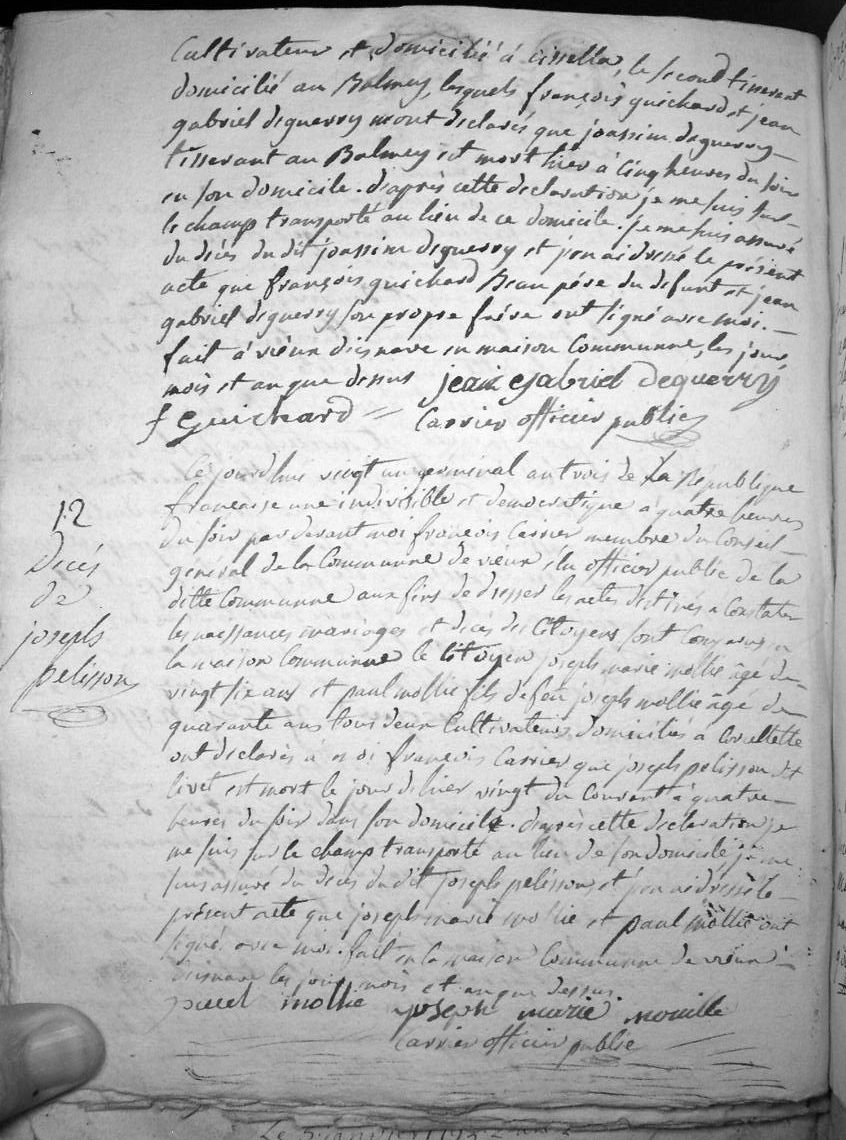 Cultivateur et domicilié à cisella, le second tisserant
domicilié au Balmey, lesquels françois guichard et jean
gabriel deguerry mont declarés que joassim deguerry
tisserant au Balmey est mort hier à cinq heures du soir
en son domicile. d'après cette declaration je me suis sur
le champ transporté au lieu de ce domicile. je me suis assuré
du décès du dit joassim deguerry et j'en ai dressé le présent
acte que françois guichard Beau pére du defunt et jean
gabriel deguerry son propre frére ont signé avec moi.
fait à vieux d'isnave en maison Communne, les jour
mois et an que dessus jean gabriel deguerry
f Guichard = Carrier officier public
12
Décés
de
joseph
pelisson
Ce jourd'hui vingt un germinal an trois de La République
francaise une indivisible et democratique a quatre heures
du soir par devant moi françois Carrier membre du Conseil
general de la Communne de vieux élu officier public de la
ditte Communne aux fins de dresser les actes destinés a Constater
les naissances mariages et décés des Citoyens sont Comparus en
la maison Communne le Citoyen joseph marie mollie âgé de
vingt six ans et paul mollie fils de feu joseph mollie âgé de
quarante ans tous deux Cultivateurs domiciliés a Corcellette
ont declarés à moi françois Carrier que joseph pelisson dit
livet est mort le jour d'hier vingt du Courant à quatre
heures du soir dans son domicile. d'après cette declaration je
me suis sur le champ transporté au lieu de son domicile je me
suis assuré du décés du dit joseph pelisson et j'en ai dressé le
présent acte que joseph marie mollie et paul mollie ont
signé avec moi. fait en la maison Communne de vieux
d'isnave les jour mois et an que dessus.
mollie joseph marie mouille
Carrier officier public